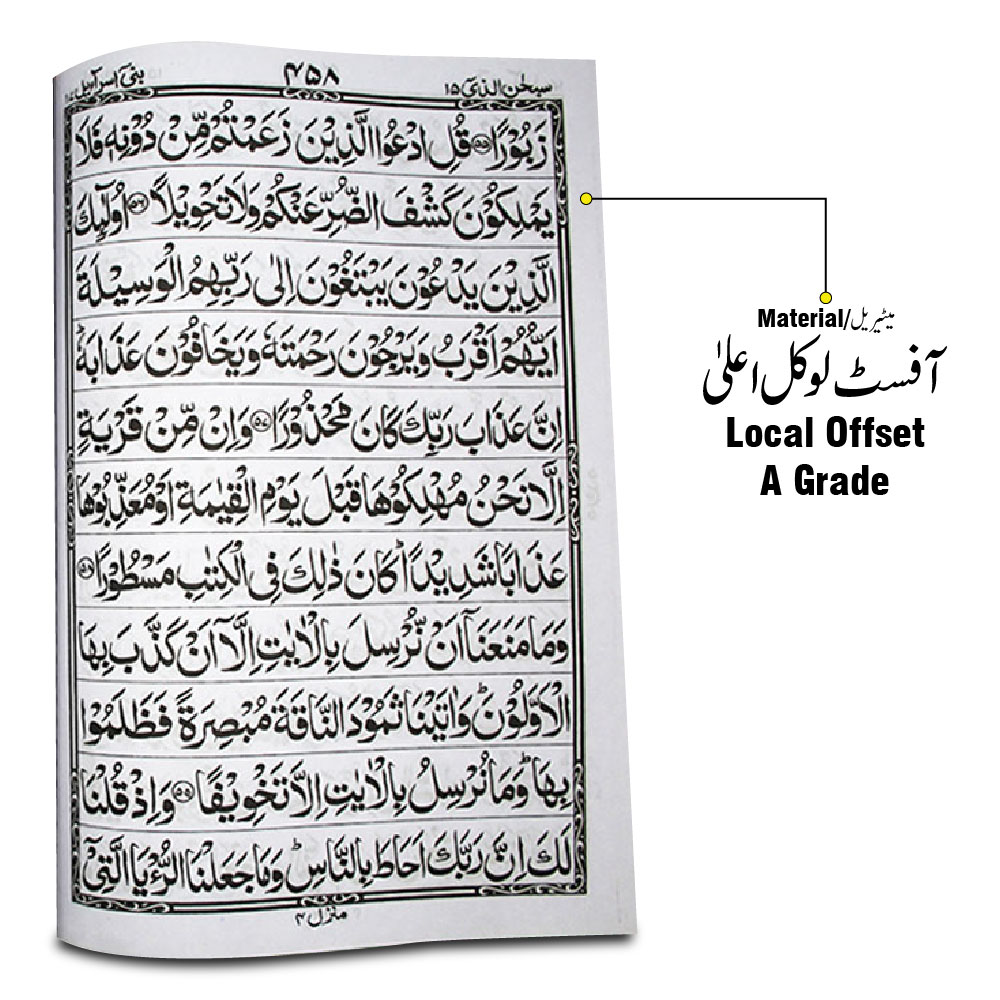 سبحٰن الذیٓ ۱۵
۴۵۸
بنیٓ اسرآءیل ۱۷
زَبُوْرًا ﴿۵۵﴾ قُلِ ادْعُوا الَّذِیْنَ زَعَمْتُمْ مِّنْ دُوْنِهٖ فَلَا
یَمْلِكُوْنَ كَشْفَ الضُّرِّ عَنْكُمْ وَلَا تَحْوِیْلًا ﴿۵۶﴾ اُولٰٓئِكَ
الَّذِیْنَ یَدْعُوْنَ یَبْتَغُوْنَ اِلٰی رَبِّهِمُ الْوَسِیْلَةَ
اَیُّهُمْ اَقْرَبُ وَیَرْجُوْنَ رَحْمَتَهٗ وَیَخَافُوْنَ عَذَابَهٗ ؕ
اِنَّ عَذَابَ رَبِّكَ كَانَ مَحْذُوْرًا ﴿۵۷﴾ وَاِنْ مِّنْ قَرْیَةٍ
اِلَّا نَحْنُ مُهْلِكُوْهَا قَبْلَ یَوْمِ الْقِیٰمَةِ اَوْ مُعَذِّبُوْهَا
عَذَابًا شَدِیْدًا ؕ كَانَ ذٰلِكَ فِی الْكِتٰبِ مَسْطُوْرًا ﴿۵۸﴾
وَمَا مَنَعَنَاۤ اَنْ نُّرْسِلَ بِالْاٰیٰتِ اِلَّاۤ اَنْ كَذَّبَ بِهَا
الْاَوَّلُوْنَ ؕ وَاٰتَیْنَا ثَمُوْدَ النَّاقَةَ مُبْصِرَةً فَظَلَمُوْا
بِهَا ؕ وَمَا نُرْسِلُ بِالْاٰیٰتِ اِلَّا تَخْوِیْفًا ﴿۵۹﴾ وَاِذْ قُلْنَا
لَكَ اِنَّ رَبَّكَ اَحَاطَ بِالنَّاسِ ؕ وَمَا جَعَلْنَا الرُّءْیَا الَّتِیْۤ
منزل ۴
Material/میٹیریل
آفسٹ لوکل اعلیٰ
Local Offset
A Grade